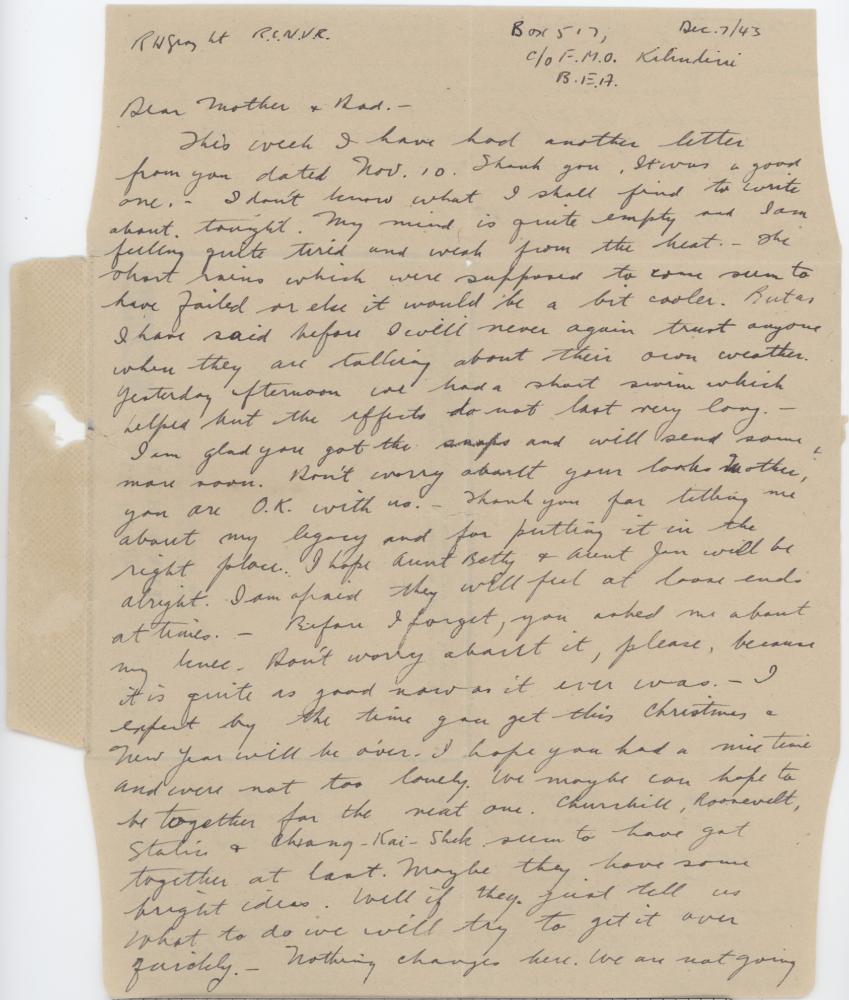 RHGray Lt R.C.N.V.R.
Box 517, Dec. 7/43
c/o F.M.O. Kilindini
B.E.A.
Dear Mother & Dad. -
This week I have had another letter
from you dated Nov. 10. Thank you, It was a good
one. - I don't know what I shall find to write
about tonight. My mind is quite empty and I am
feeling quite tired and weak from the heat. - The
short rains which were supposed to come seem to
have failed or else it would be a bit cooler. But as
I have said before I will never again trust anyone
when they are talking about their own weather.
Yesterday afternoon we had a short swim which
helped but the effects do not last very long. -
I am glad you got the snaps and will send some
more soon. Don't worry about your looks Mother,
you are O.K. with us. - Thank you for telling me
about my legacy and for putting it in the
right place. I hope Aunt Betty & Aunt Jen will be
alright. I am afraid they will feel at loose ends
at times. - Before I forget, you asked me about
my knee. Don't worry about it, please, because
it is quite as good now as it ever was. - I
expect by the time you get this Christmas &
New Year will be over. I hope you had a nice time
and were not too lonely. We maybe can hope to
be together for the next one. Churchill, Roosevelt,
Stalin & Chiang-Kai-Shek seem to have got
together at last. Maybe they have some
bright ideas. Well if they just tell us
what to do we will try to get it over
quickly. - Nothing changes here. We are not going